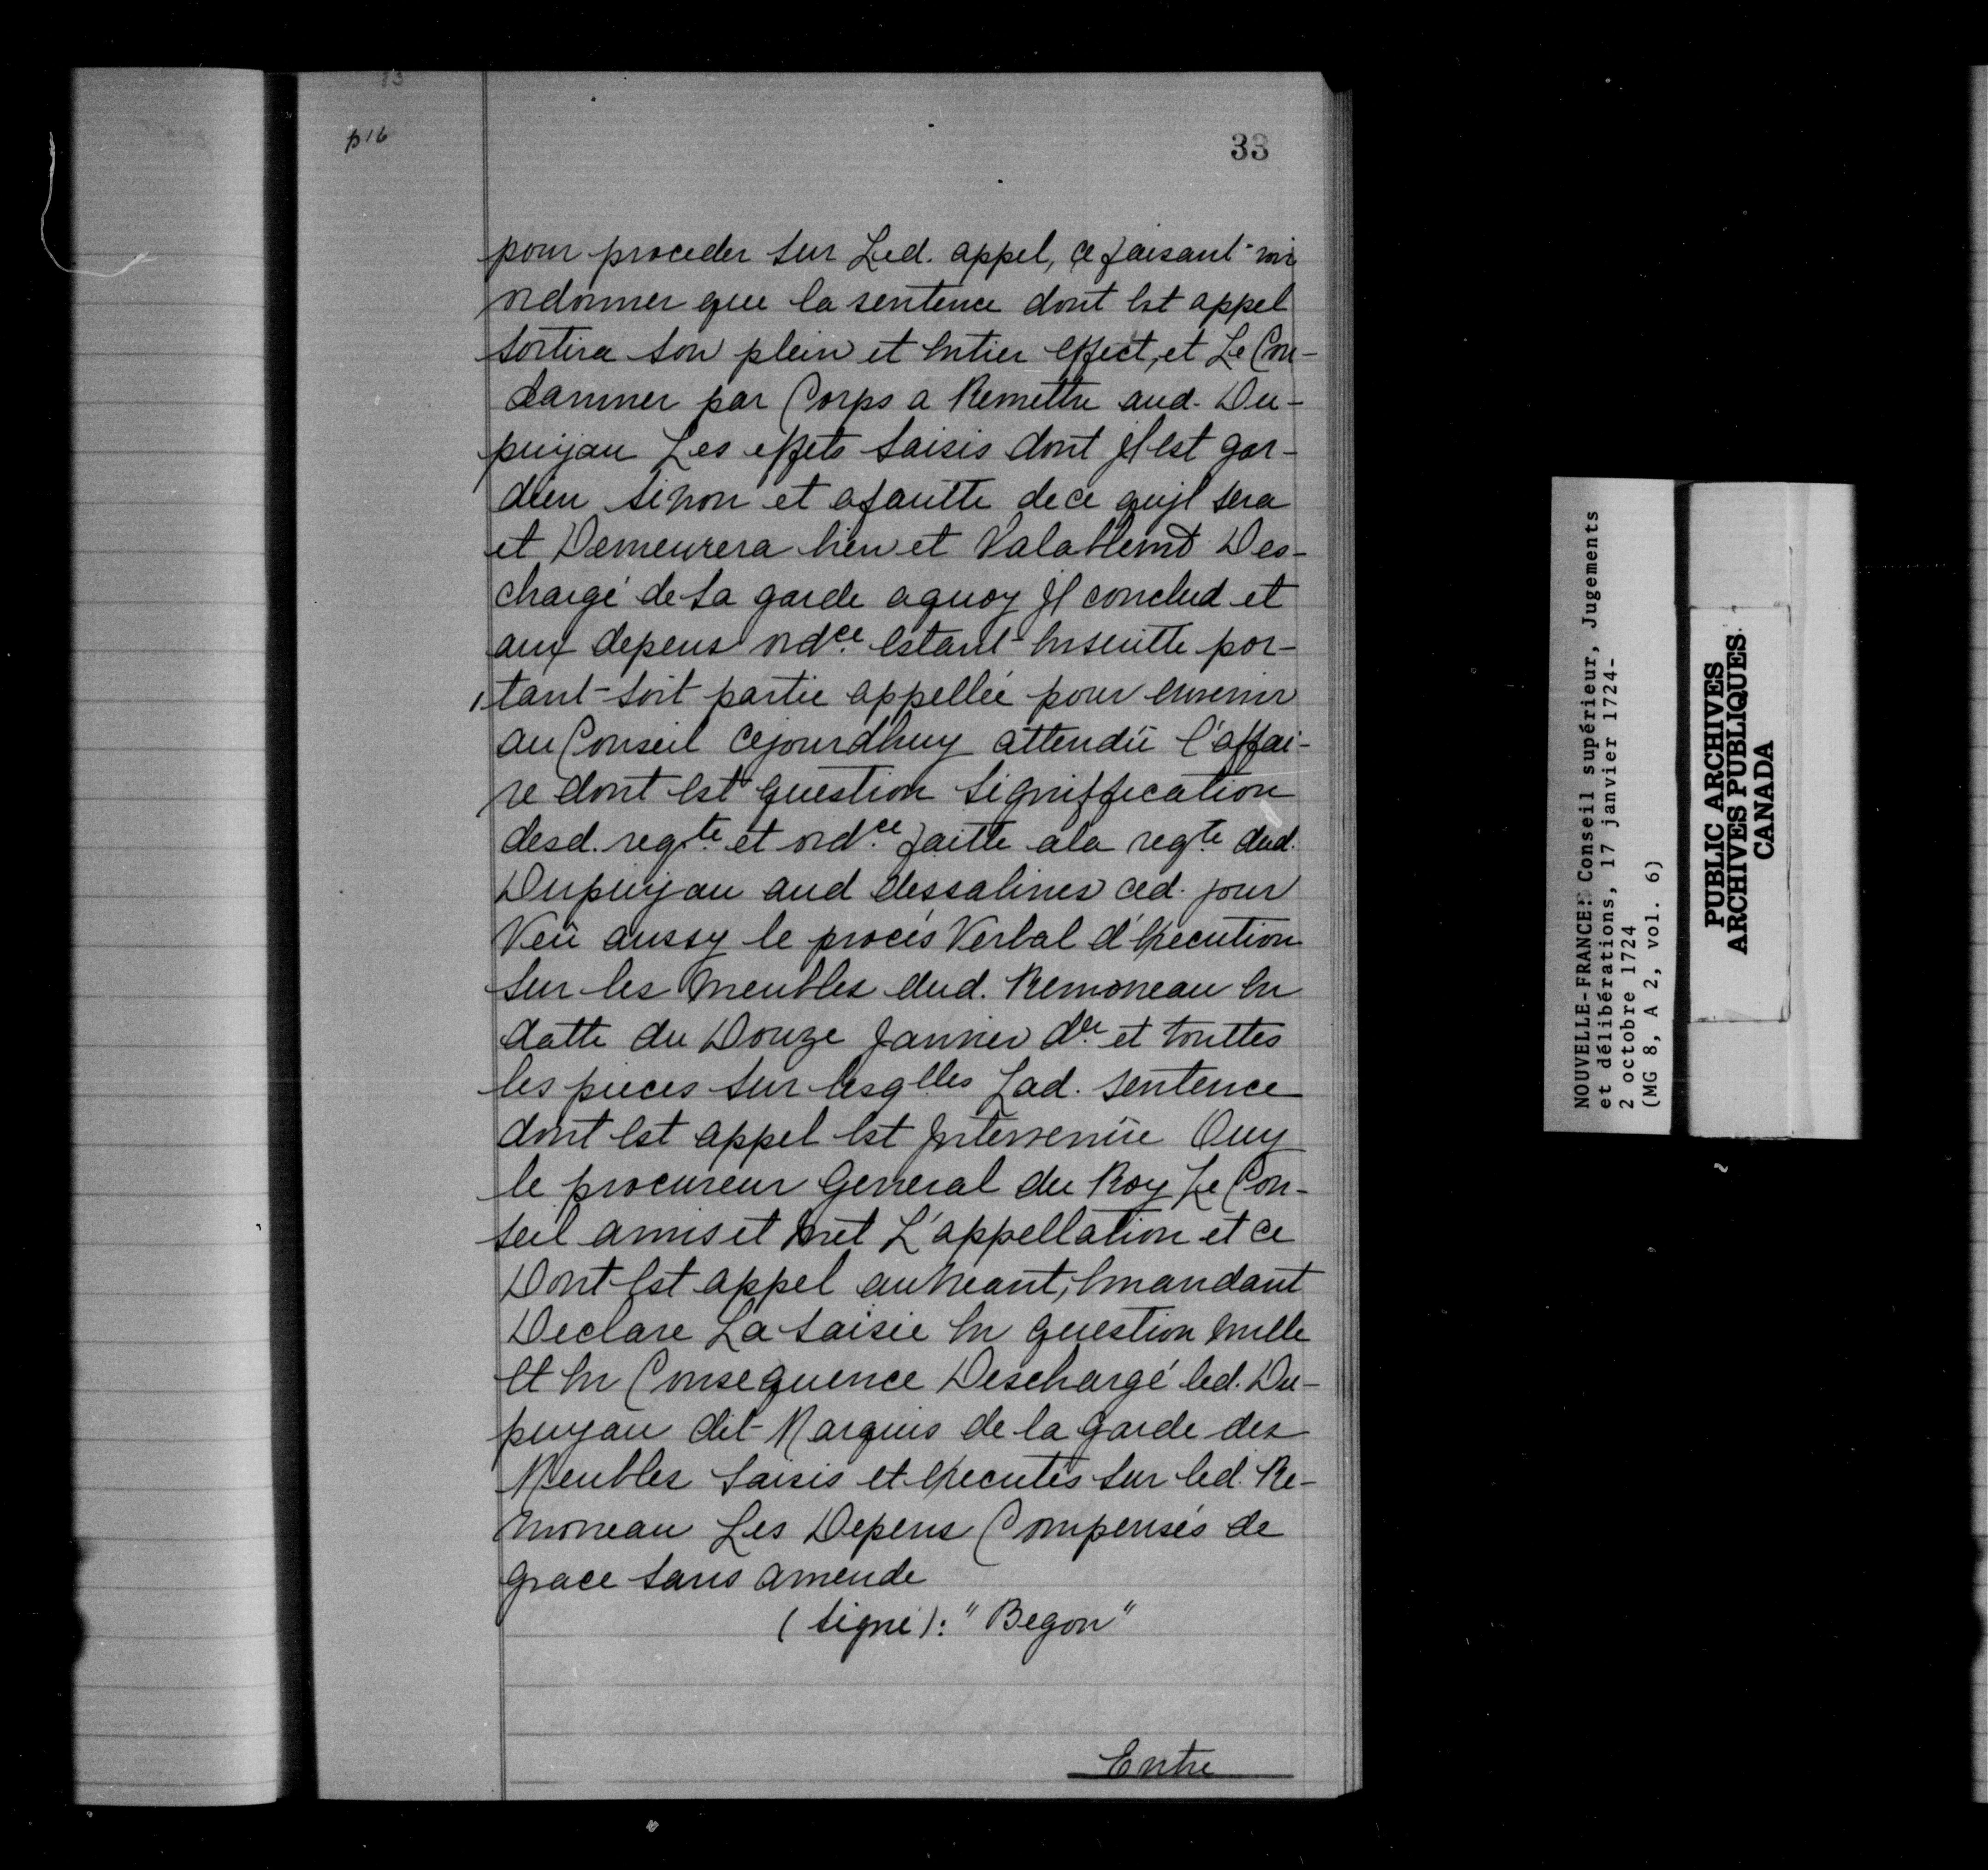 p16
33
pour proceder sur Led. appel, ce faisant voir
ordonner que la sentence dont Est appel
sortira son plein et Entier effect, et Le Con-
damner par Corps a Remettre aud. Du-
puyau Les effets saisis dont Jl Est gar-
dien sinon et afautte dece qujl sera
et Demeurera bien et Valablemt Des-
chargé de sa garde aquoy Jl conclud et
aux depens ordce. Estant Ensuitte por-
tant soit partie appellée pour Envenir
au Conseil cejourdhuy attendü l'affai-
re dont Est question signiffication
desd. reqte. et ordce. faitte ala reqte dud.
Dupuyau aud dessalines ced. jour
Veü aussy le procés Verbal d'Execution
sur les Meubles dud. Remoneau En
datte du Douze Janvier der et touttes
les pieces sur lesqlles Lad. sentence
dont Est appel Est Jntervenüe Ouy
le procureur General du Roy Le Con-
seil amis et met L'appellation et ce
Dont Est appel auneant, Emandant
Declare La saisie En question nulle
Et En Consequence Deschargé led. Du-
puyau dit Marquis de la garde des
Meubles saisis et Executés sur led. Re-
moneau Les Depens Compensés de
grace sans amende
(signé): "Begon"
Entre
NOUVELLE-FRANCE: Conseil supérieur, Jugements
et délibérations, 17 janvier 1724-
2 octobre 1724
(MG 8, A 2, vol. 6)
PUBLIC ARCHIVES
ARCHIVES PUBLIQUES
CANADA